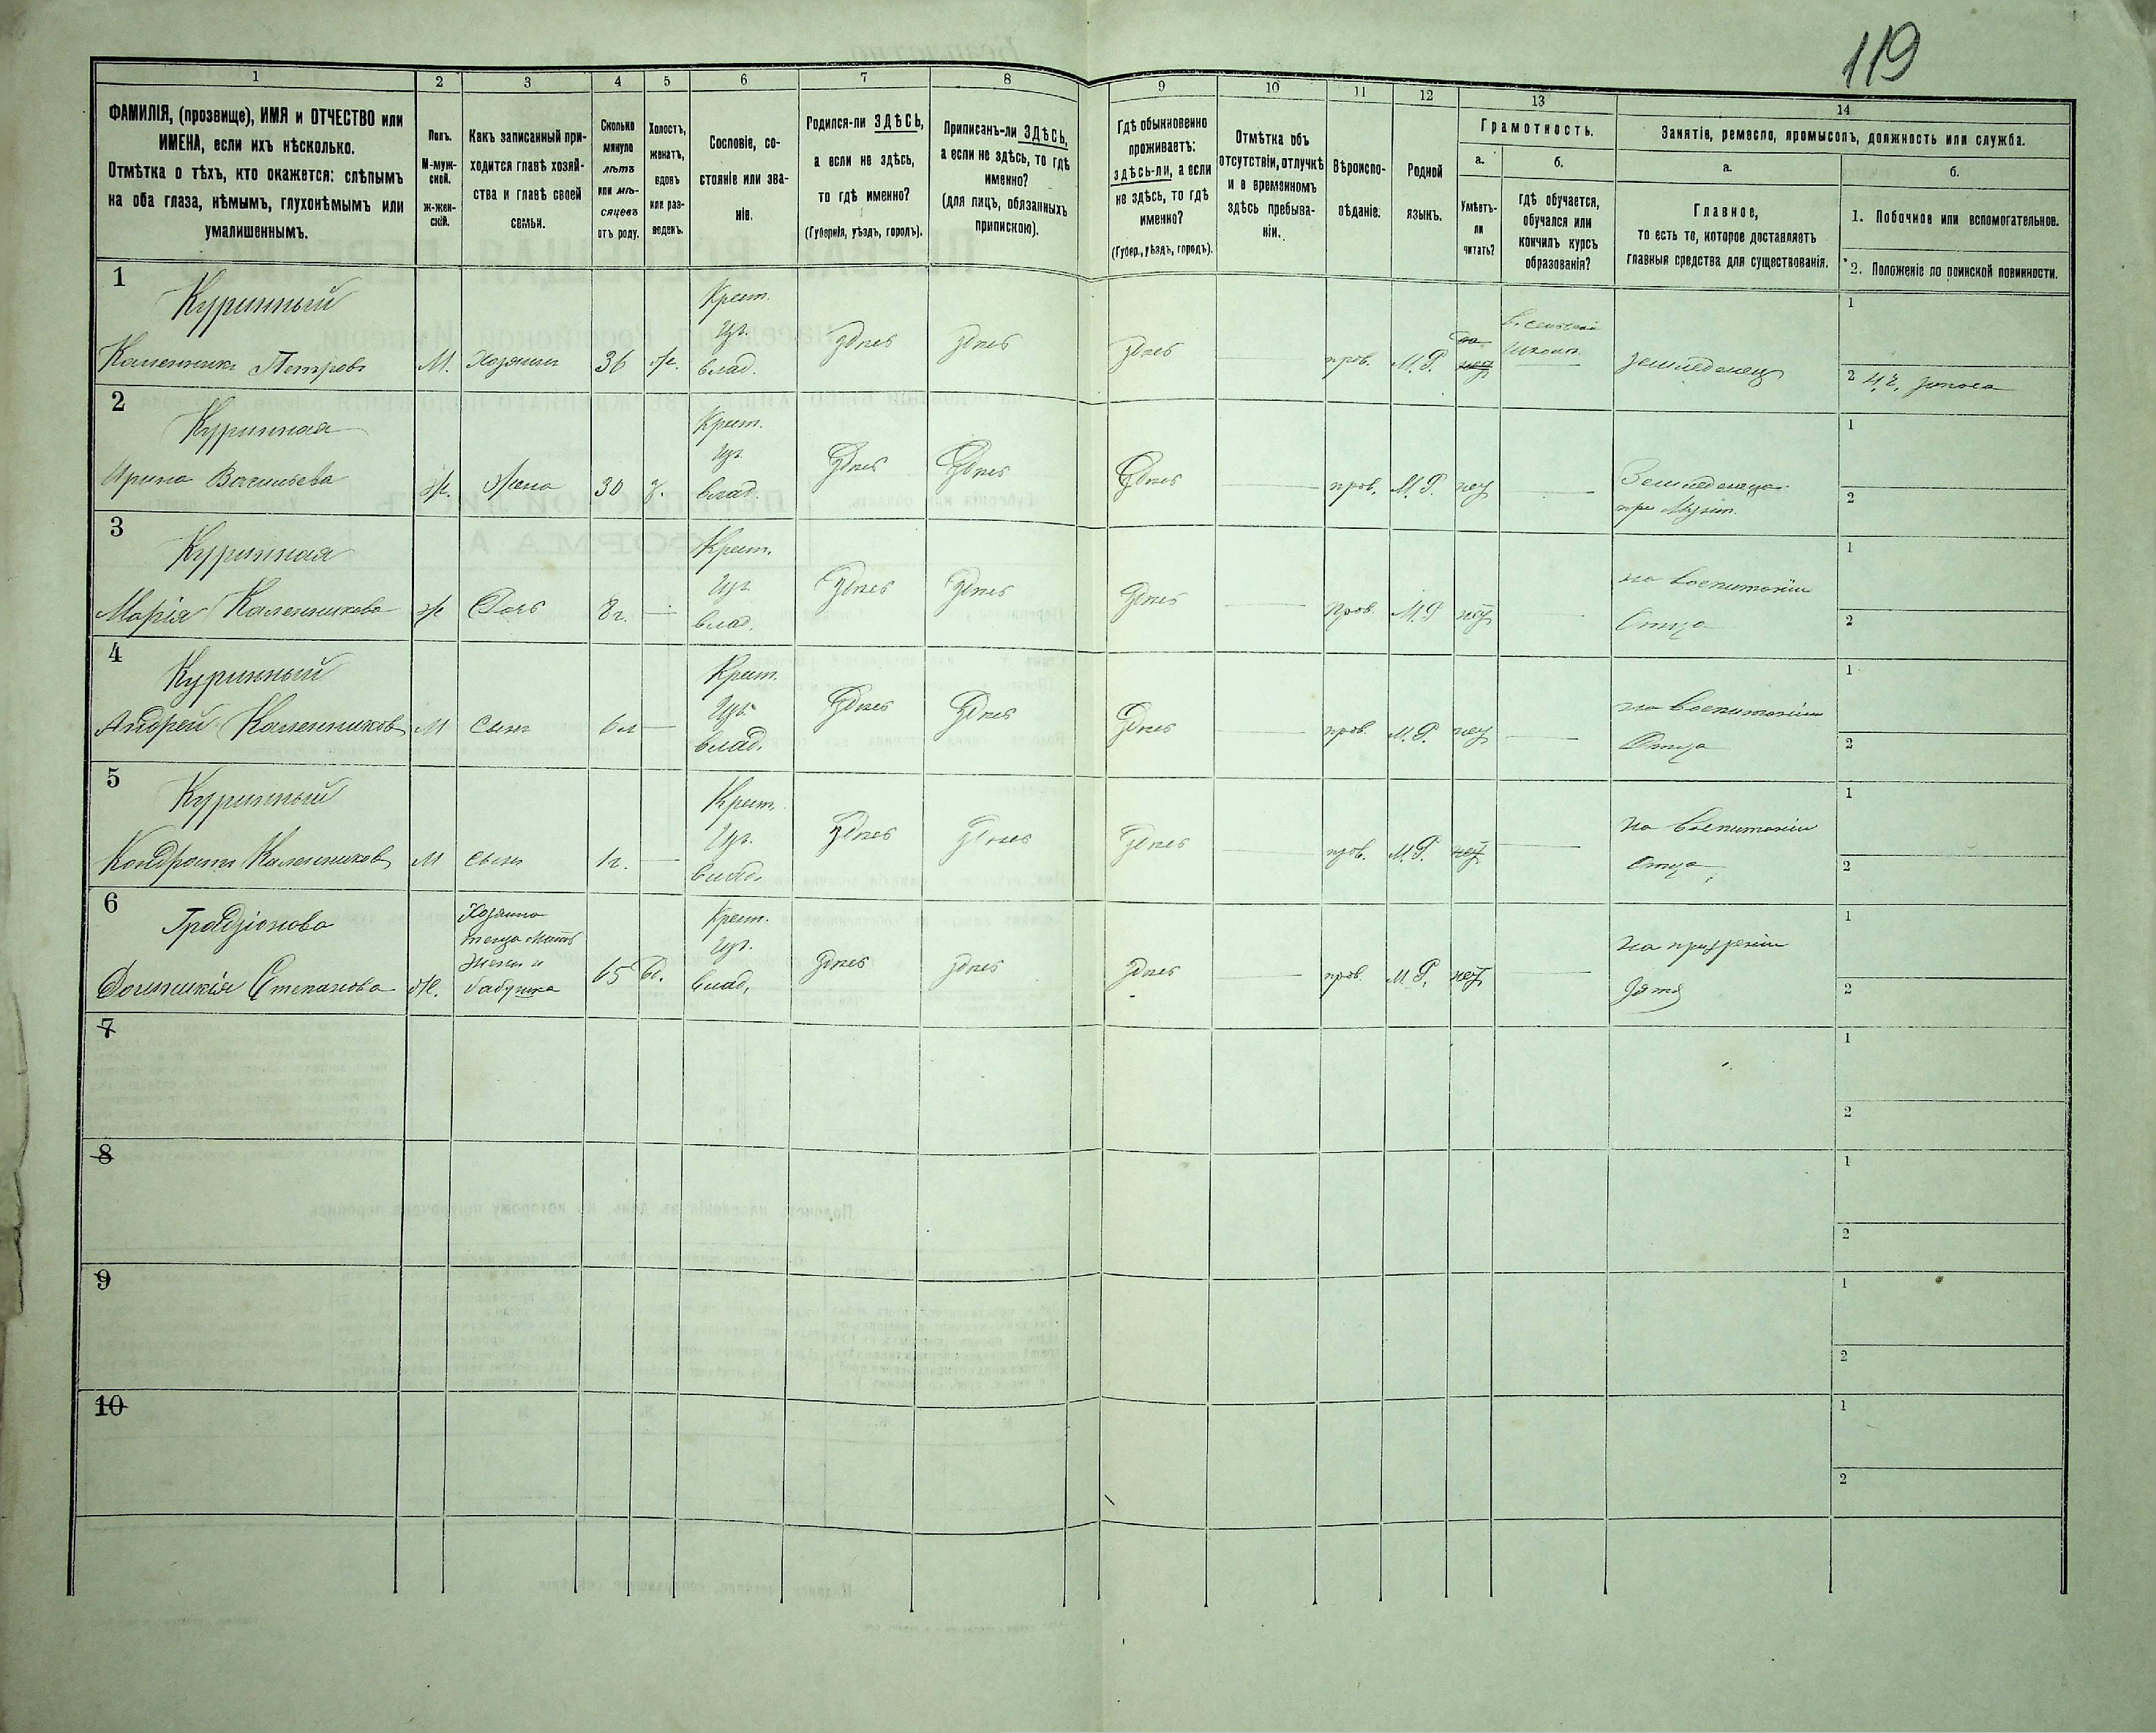 119
1 2 3 4 5 6 7 8 9 10 11 12 13 14
ФАМИЛІЯ, (прозвище), ИМЯ и ОТЧЕСТВО или
ИМЕНА, если ихъ нѣсколько.
Отмѣтка о тѣхъ, кто окажется: слѣпымъ
на оба глаза, нѣмымъ, глухонѣмымъ или
умалишеннымъ.
Полъ.
М-муж-
ской.
ж-жен-
скій.
Какъ записанный при-
ходится главѣ хозяй-
ства и главѣ своей
семьи.
Сколько
минуло
лѣтъ
или мѣ-
сяцевъ
отъ роду.
Холостъ,
женатъ,
вдовъ
или раз-
веденъ.
Сословіе, со-
стояніе или зва-
ніе.
Родился-ли ЗДѢСЬ,
а если не здѣсь,
то гдѣ именно?
(Губернія, уѣздъ, городъ).
Приписанъ-ли ЗДѢСЬ,
а если не здѣсь, то гдѣ
именно?
(для лицъ, обязанныхъ
припискою).
Гдѣ обыкновенно
проживаетъ:
здѣсь-ли, а если
не здѣсь, то гдѣ
именно?
(Губер., уѣздъ, городъ).
Отмѣтка объ
отсутствіи, отлучкѣ
и о временномъ
здѣсь пребыва-
ніи.
Вѣроиспо-
вѣданіе.
Родной
языкъ.
Грамотность.
а.
Умѣетъ-
ли
читать?
б.
гдѣ обучается,
обучался или
кончилъ курсъ
образованія?
Занятіе, ремесло, промыселъ, должность или служба.
а.
Главное,
то есть то, которое доставляетъ
главныя средства для существованія.
б.
1. Побочное или вспомогательное.
2. Положеніе по воинской повинности.
1
Куринный
Каленникъ Петровъ
М. Хозяинъ 36 ж.
Крест.
изъ
влад.
здѣсь здѣсь здѣсь
прав. М.Р.
да
нѣтъ
въ сельской
школѣ
земледѣлецъ
1
2
2
Куринная
Ирина Васильева
ж. Жена 30 з.
Крест.
изъ
влад.
Здѣсь Здѣсь Здѣсь
прав. М.Р. нѣтъ
Земледѣлица
при Мужѣ.
1
2
3
Куринная
Марія Каленникова
ж Дочь 8 г.
Крест.
изъ
влад.
Здѣсь Здѣсь Здѣсь
прав. М.Р нѣтъ
на воспитаніи
Отца
1
2
4
Куринный
Андрей Каленниковъ
М Сынъ 6 л
Крест.
изъ
влад.
Здѣсь Здѣсь Здѣсь
прав. М.Р. нѣтъ
на воспитаніи
Отца
1
2
5
Куринный
Кондратъ Каленниковъ
М сынъ 1 г.
Крест.
изъ
влад.
Здѣсь Здѣсь Здѣсь
прав. М.Р. нѣтъ
на воспитаніи
Отца
1
2
6
Степанова
ж.
Хозяина
теща Мать
Жены и
бабушка
65 вд.
Крест.
изъ
влад.
Здѣсь здѣсь здѣсь
прав. М.Р. нѣтъ
на призрѣніи
Зятя
1
2
7
1
2
8
1
2
9
1
2
10
1
2